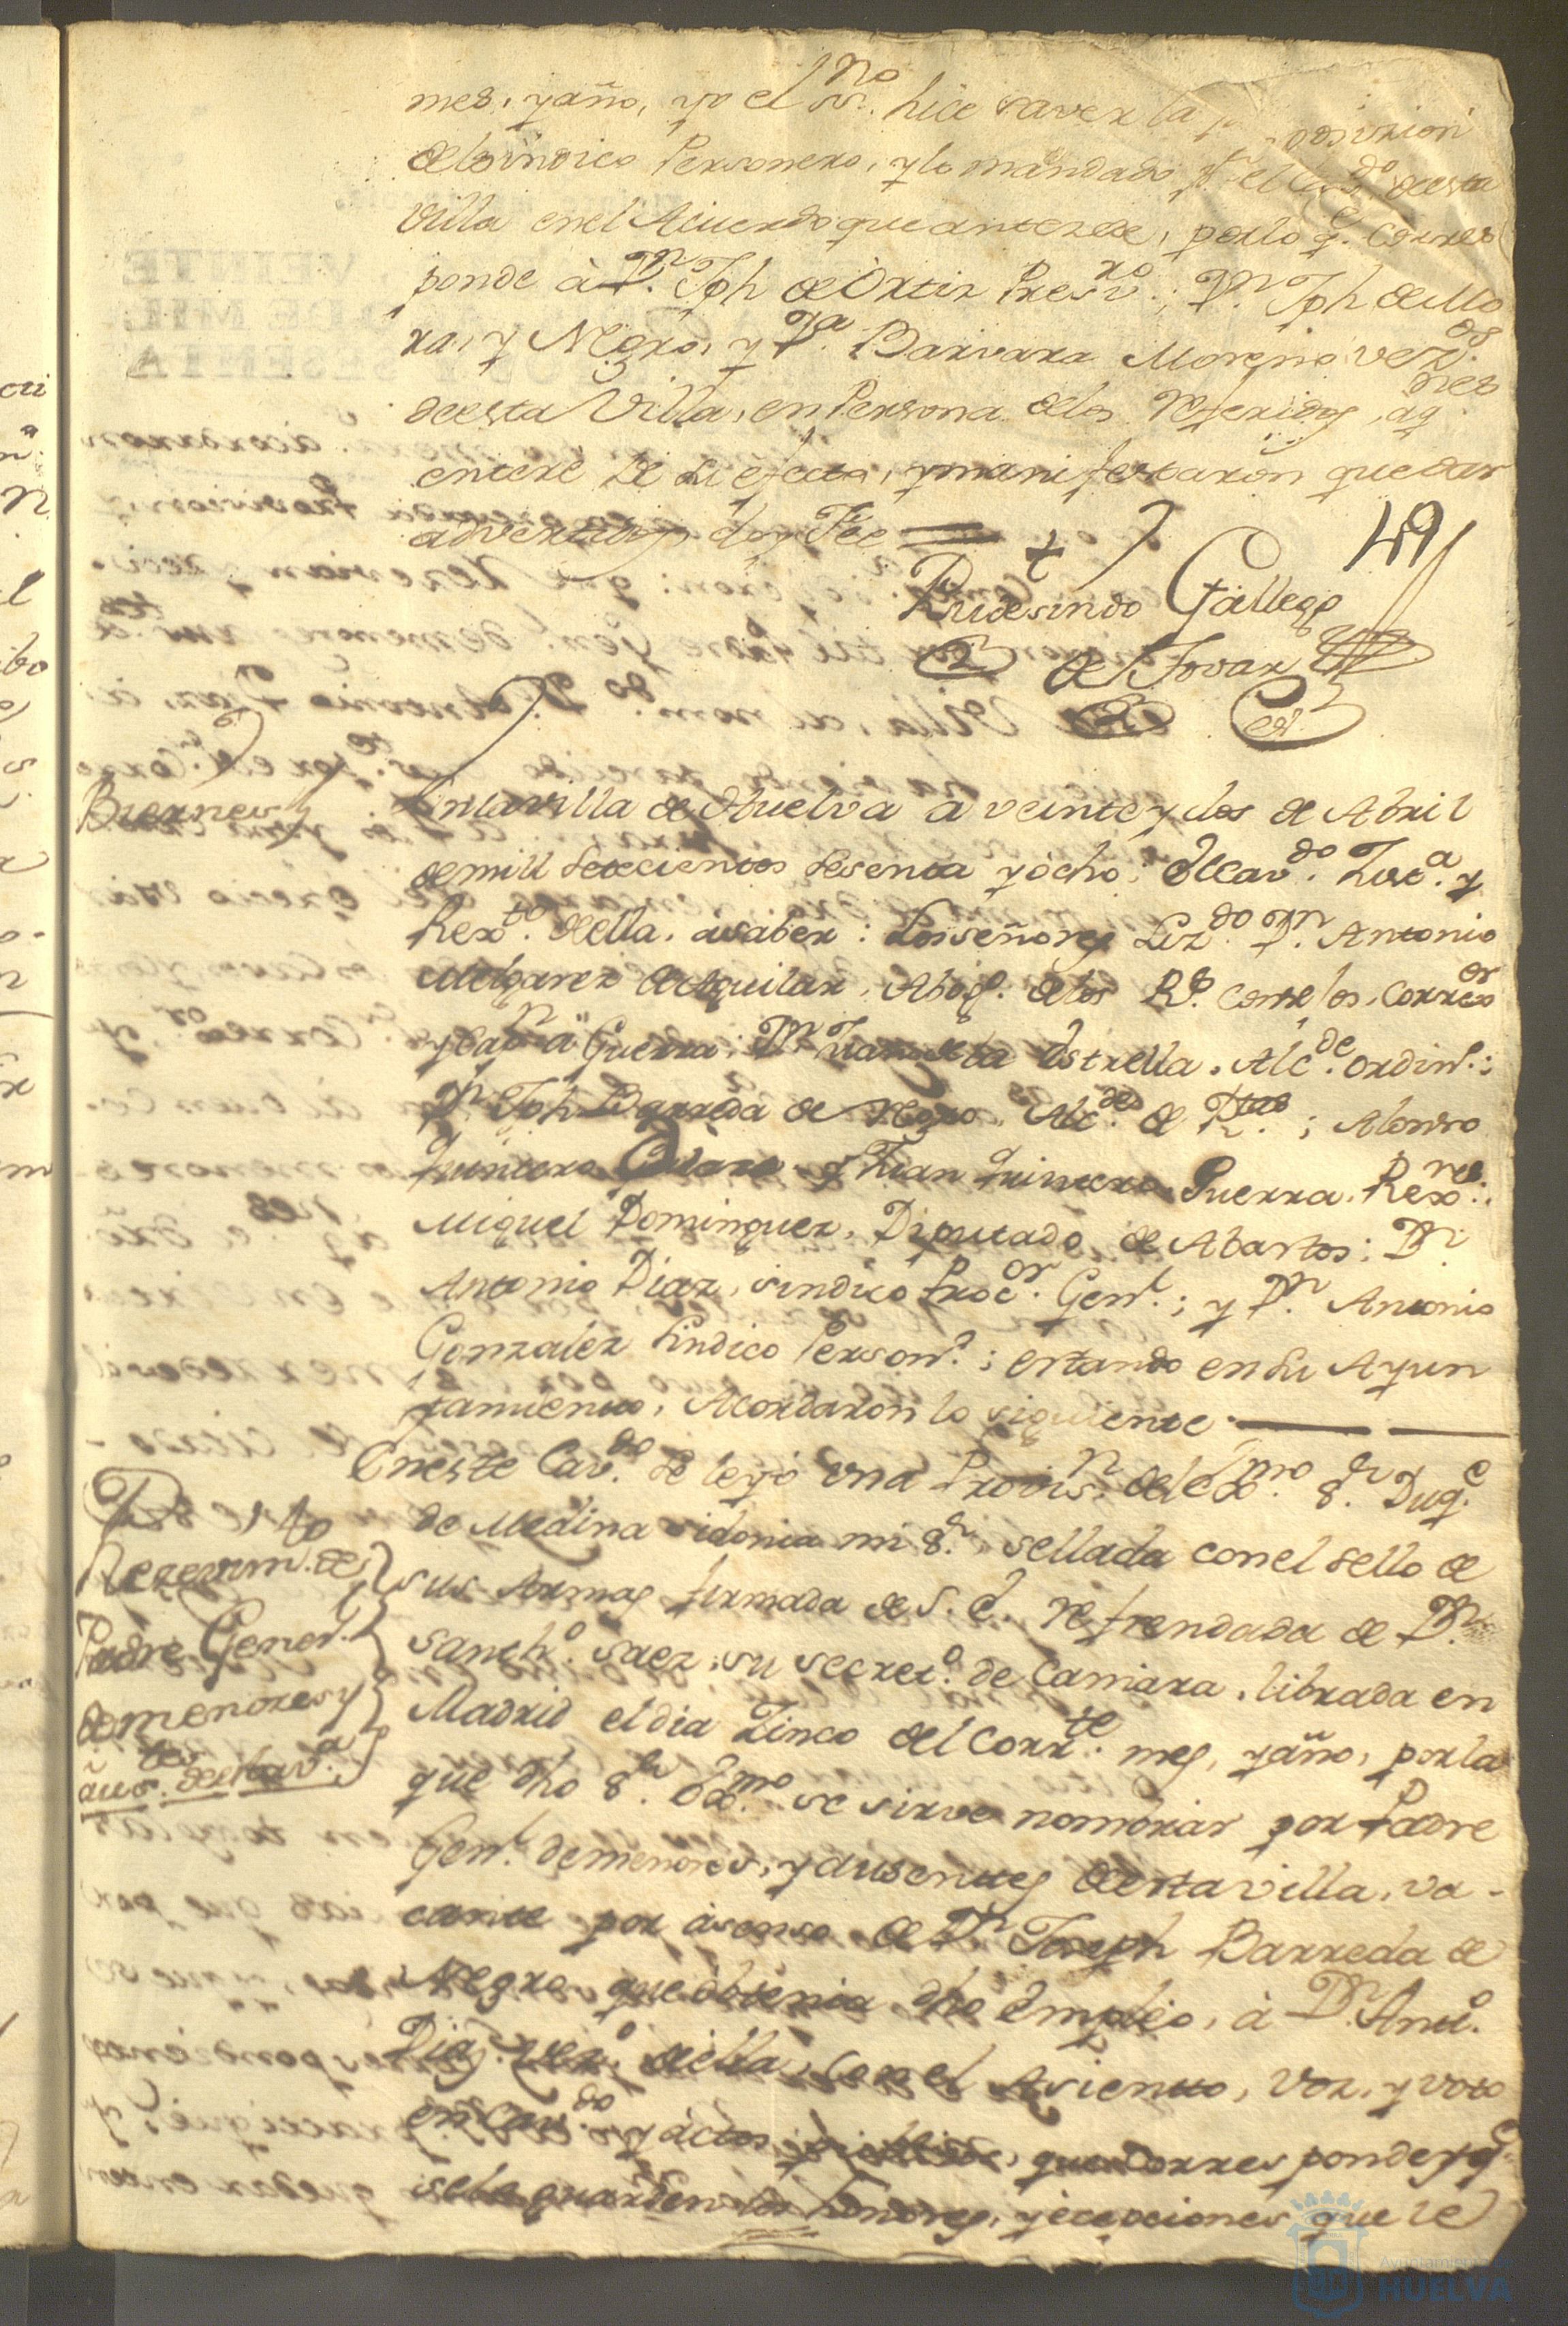 mes, y año, yo el ssno. hice saver la
del sindico Personero, y lo mandado pr. el Cavdo. de esta
villa en el Acuerdo que antesede, por lo q. corres
ponde à Dn. Jph de Ortiz Presvro.; Dn. Jph de Mo
ra, y Negro, y Da. Barvara Moreno vezos.
de esta Villa, en Persona de los referidos, aqnes
enteré de su efecto, y manifestaron quedar
advertidos doy Fee =
49
Rudesindo Gallego
de Tovar
esno.
Viernes
En la villa de Huelva a veinte y dos de Abril
de mill setecientos sesenta y ocho: El Cavdo. Justa. y
Rexto. de ella, a saber: Los señores Lizdo. Dn. Antonio
Melgarejo de Aguilar, Abogo. de los Rs. Consejos, Correxor
y Capn. a Guerra; Dn. Juan de la Estrella, Alcde. ordino.;
Dn. Jph Barreda de Negro, Alcde. de Rtas.; Alonso
Quintero y Juan Quintero Guerra, Rexres.:
Miguel Dominguez, Diputado de Abastos; Dn.
Antonio Diaz, sindico Procor. Genl.; y Dn. Antonio
Gonzalez sindico Persono.; estando en su Ayun
tamiento, Acordaron lo siguiente
En este Cavdo. se leyó una Provisn. del Exmo. Sr. Duqe.
de Medina sidonia mi Sr., sellada con el sello de
sus Armas firmada de S. E. refrendada de Dn.
Sancho. Saez, su secreto. de Camara, librada en
Madrid el dia Zinco del Corrte. mes, y año, por la
que dho Sr. Exmo. se sirve nombrar por Padre
Genl. de menores, y ausentes de esta villa, va-
cante por àsenso de Dn. Joseph Barreda de
Negro, que obtenia dho Empleo, à Dn. Anto.
Diaz vezo. de ella, con el Asiento, voz, y voto
en Cavdo. y actos publicos, que corresponde y qe.
se le guarden los honores, y ecepciones que le
Rezevimto. de
Padre Generl.
de menores y
ausetes. de esta va.
Ayuntamiento de
HUELVA